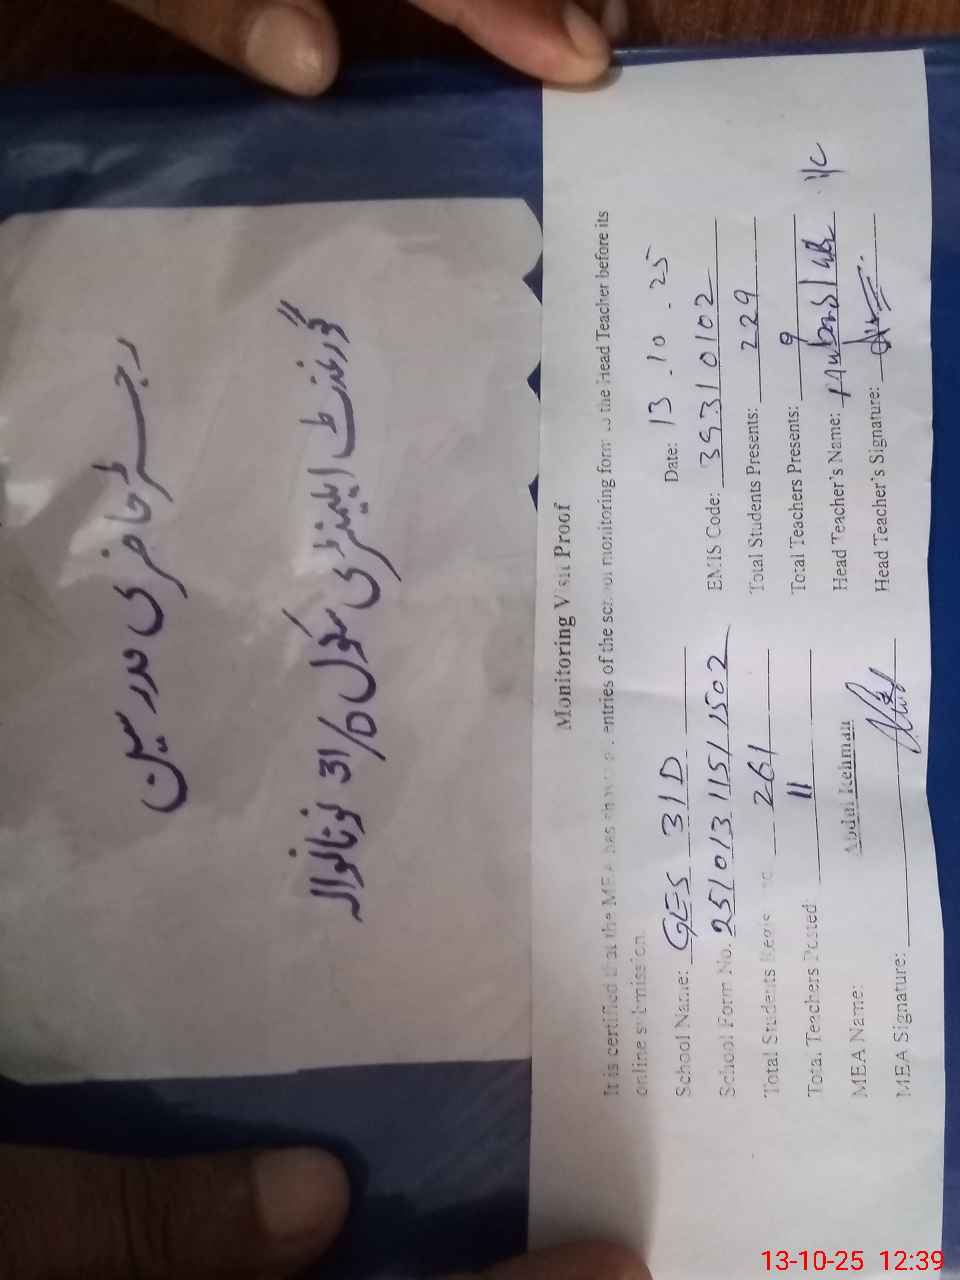 رجسٹر حاضری مدرسین
گورنمنٹ ایلیمنٹری سکول 31/D فوتانوالہ
Monitoring Visit Proof
It is certified that the MEA has shown all entries of the school monitoring form to the Head Teacher before its
online submission.
School Name: GES 31D Date: 13.10.25
School Form No. 25101311511502 EMIS Code: 39310102
Total Students Regis 261 Total Students Presents: 229
Total Teachers Posted: 11 Total Teachers Presents: 9
MEA Name: Abdul Rehman Head Teacher's Name: I/C
MEA Signature: Head Teacher's Signature:
13-10-25 12:39